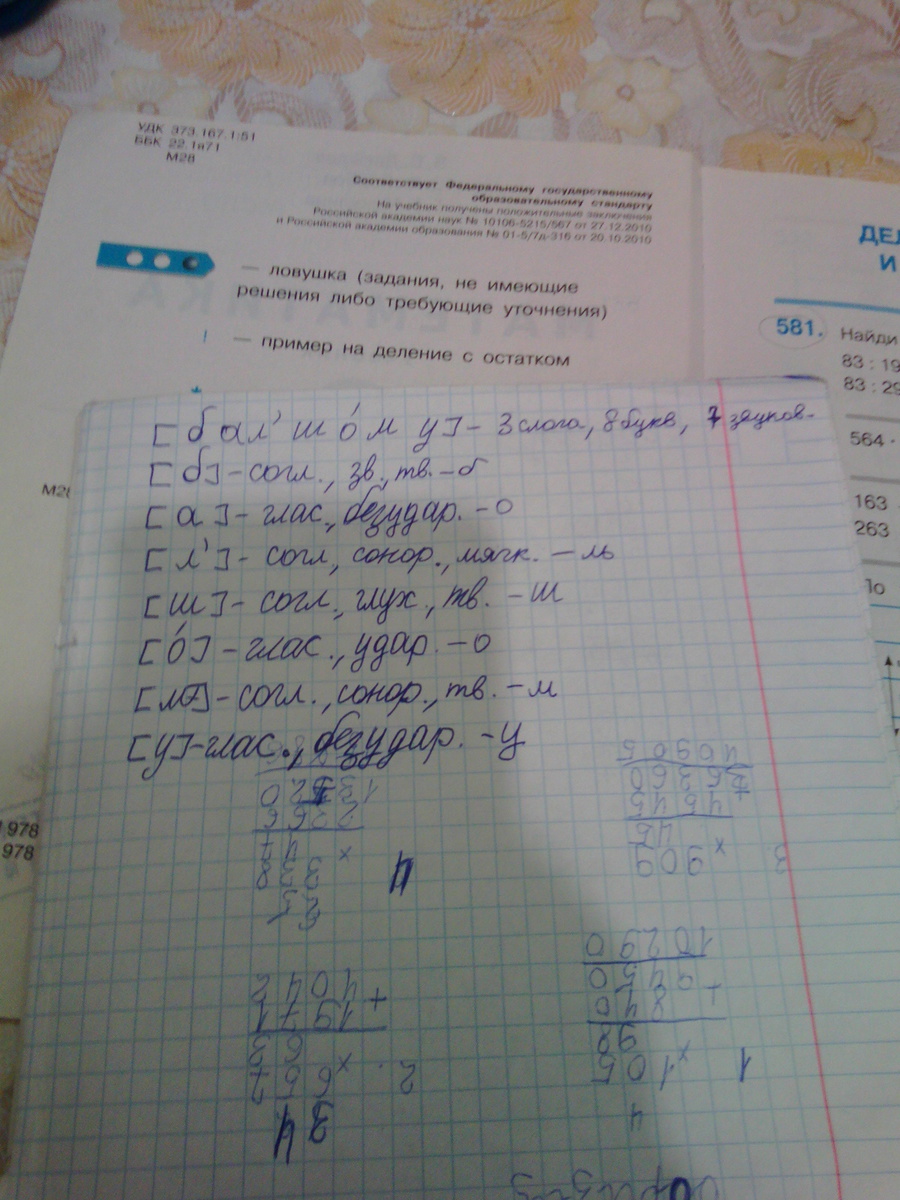 УДК 373.167.1:51
ББК 22.1я71
М28
Соответствует Федеральному государственному
образовательному стандарту
На учебник получены положительные заключения
Российской академии наук № 10106-5215/667 от 27.12.2010
и Российской академии образования № 01-5/7д-316 от 20.10.2010
— ловушка (задания, не имеющие
решения либо требующие уточнения)
! — пример на деление с остатком
МАТЕМАТИКА
М28
978
978
ДЕЛ
И
581. Найди
83 : 19
83 : 29
564 ·
163
263
По
[бал'шóму] - 3 слога, 8 букв, 7 звуков.
[б] - согл., зв., тв. - б
[а] - глас., безудар. - о
[л'] - согл, сонор., мягк. - ль
[ш] - согл., глух., тв. - ш
[ó] - глас., удар. - о
[м] - согл., сонор., тв. - м
[у] - глас., безудар. - у
3 × 909
45
+ 4545
3636 0
40905
4
1 × 105
98
+ 840
945 0
10290
2. × 657
63
+ 1971
4042
4